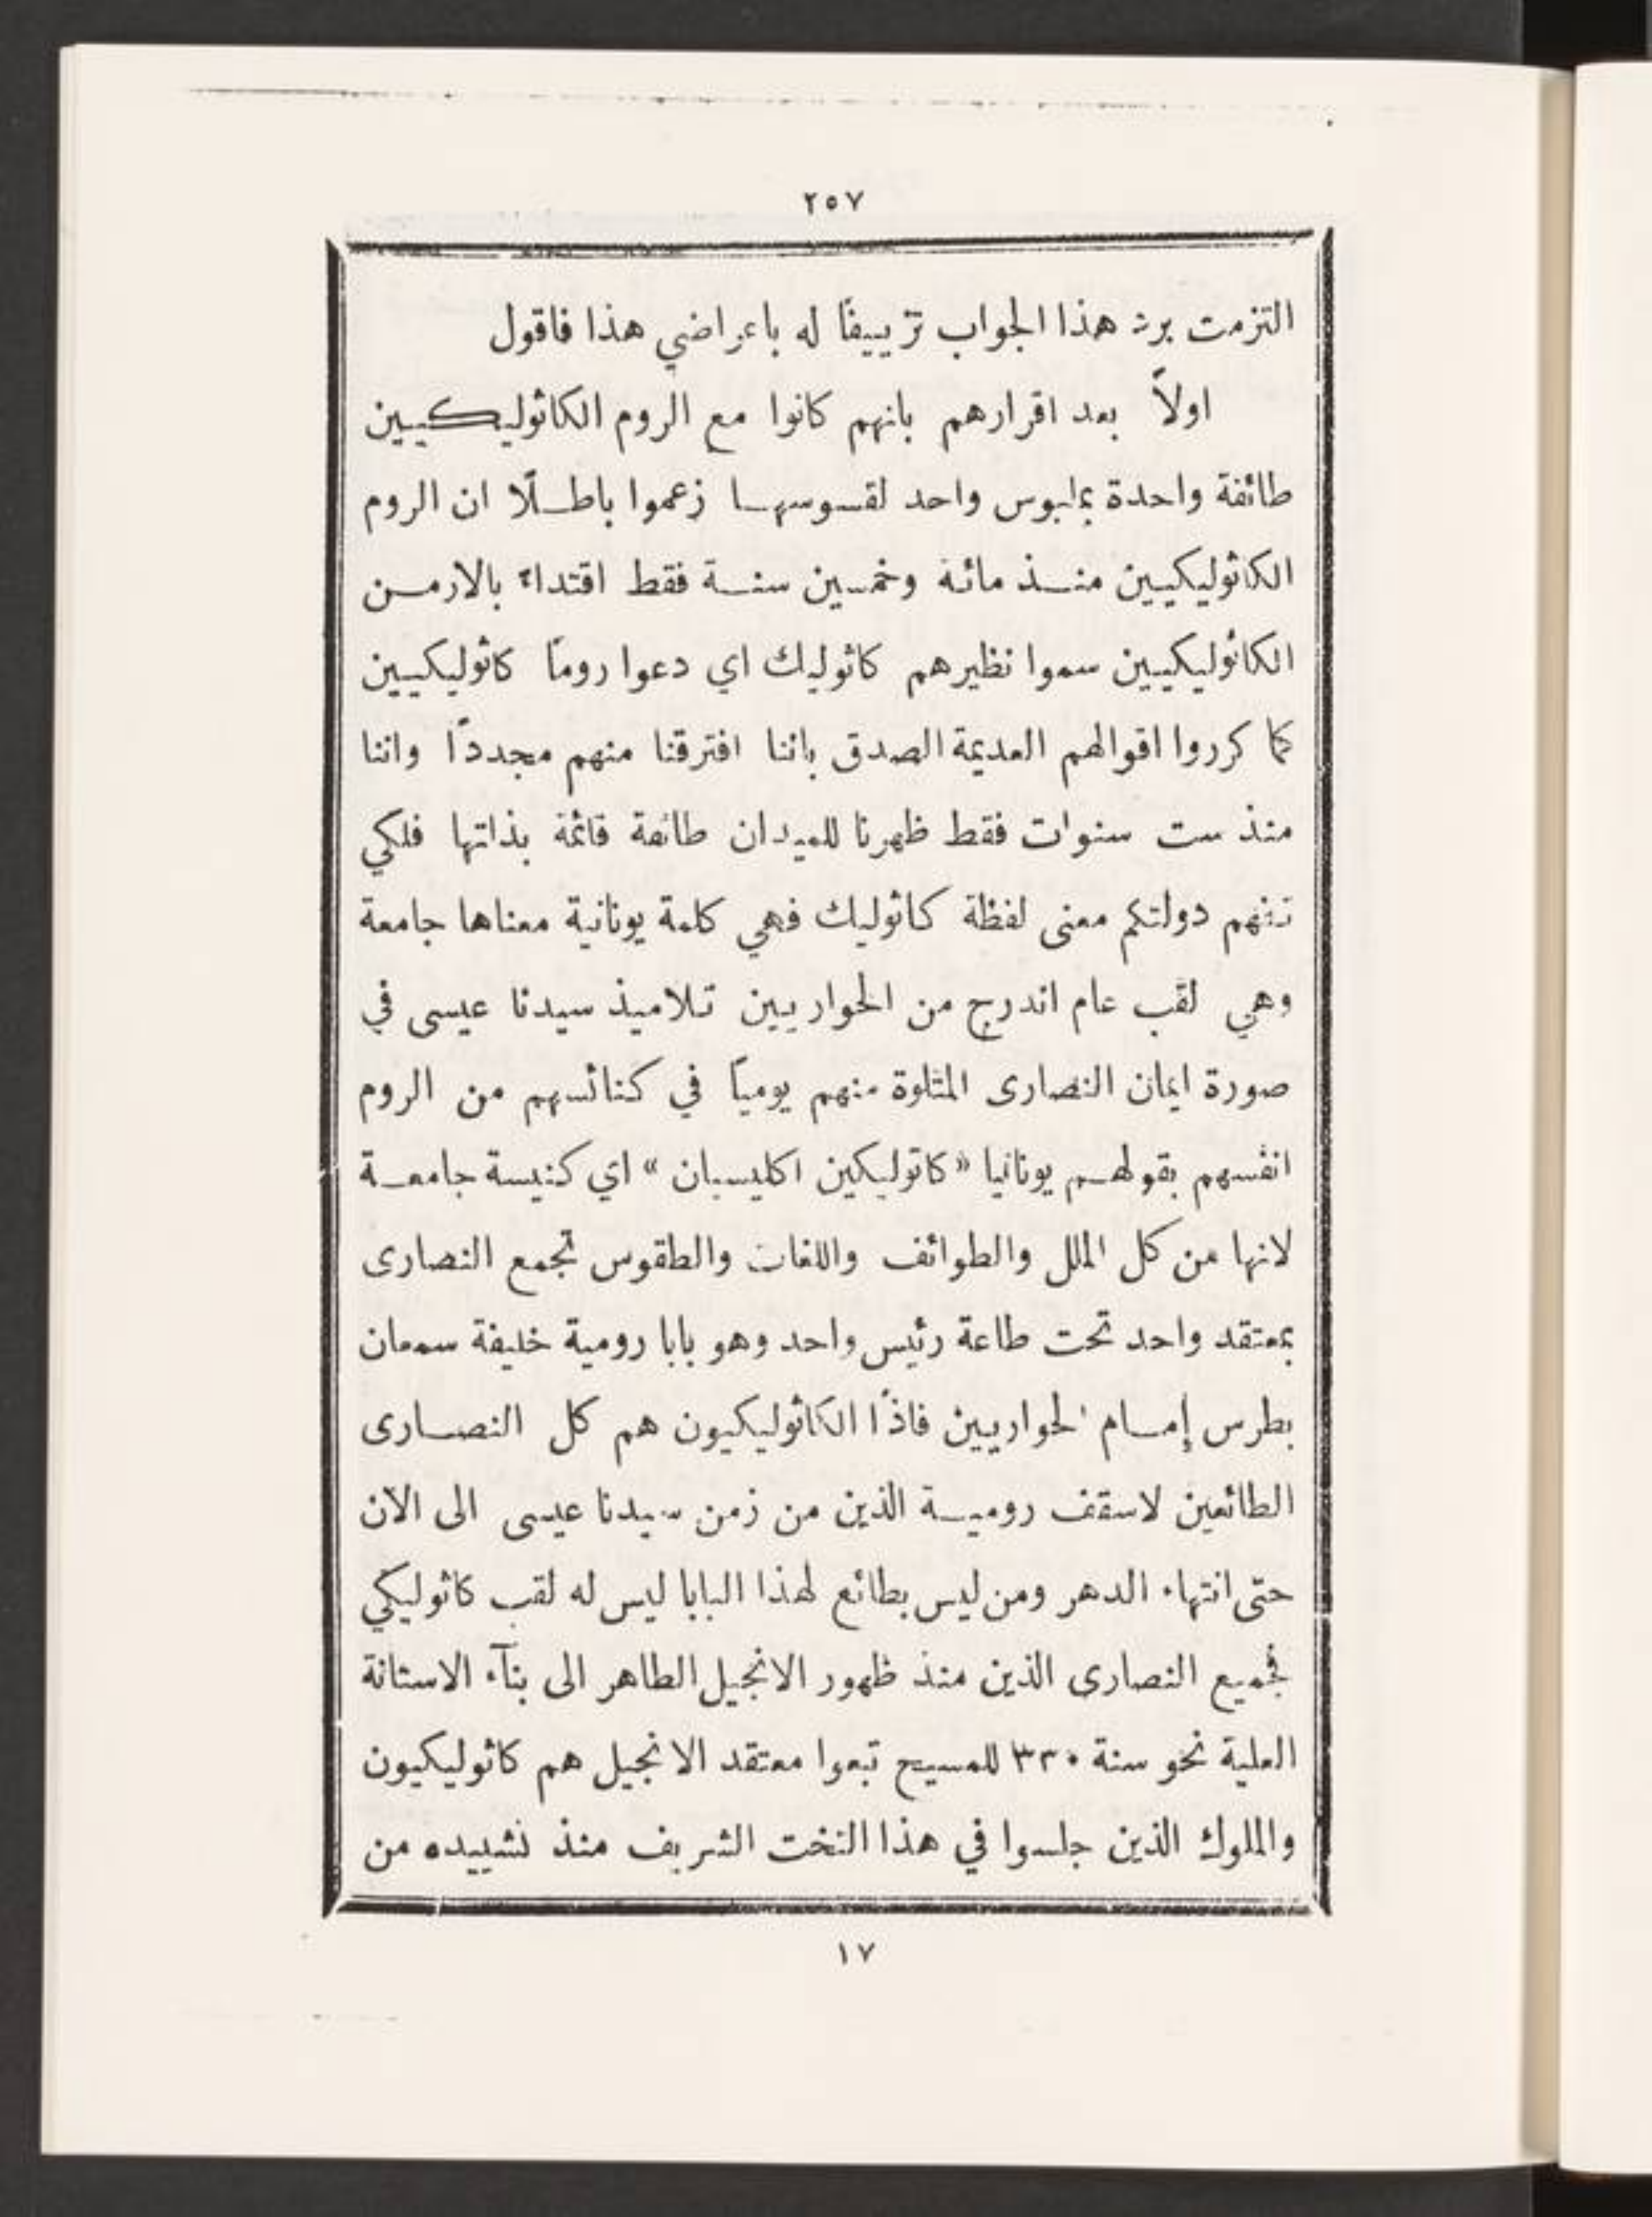 ٢٥٧
التزمت برد هذا الجواب تزييفًا له باعراضي هذا فاقول
اولاً بعد اقرارهم بانهم كانوا مع الروم الكاثوليكيين
طائفة واحدة بملبوس واحد لقسوسها زعموا باطلًا ان الروم
الكاثوليكيين منذ مائة وخمسين سنة فقط اقتداءً بالارمن
الكاثوليكيين سموا نظيرهم كاثوليك اي دعوا رومًا كاثوليكيين
كما كرروا اقوالهم العديمة الصدق باننا افترقنا منهم مجددًا واننا
منذ ست سنوات فقط ظهرنا للميدان طائفة قائمة بذاتها فلكي
تفهم دولتكم معنى لفظة كاثوليك فهي كلمة يونانية معناها جامعة
وهي لقب عام اندرج من الحواريين تلاميذ سيدنا عيسى في
صورة ايمان النصارى المتلوة منهم يومياً في كنائسهم من الروم
انفسهم بقولهم يونانيا «كاتوليكين اكليسيان» اي كنيسة جامعة
لانها من كل الملل والطوائف واللغات والطقوس تجمع النصارى
بمعتقد واحد تحت طاعة رئيس واحد وهو بابا رومية خليفة سمعان
بطرس إمام الحواريين فاذًا الكاثوليكيون هم كل النصارى
الطائعين لاسقف رومية الذين من زمن سيدنا عيسى الى الان
حتى انتهاء الدهر ومن ليس بطائع لهذا البابا ليس له لقب كاثوليكي
فجميع النصارى الذين منذ ظهور الانجيل الطاهر الى بنآء الاستانة
العلية نحو سنة ٣٣٠ للمسيح تبعوا معتقد الانجيل هم كاثوليكيون
والملوك الذين جلسوا في هذا التخت الشريف منذ تشييده من
١٧